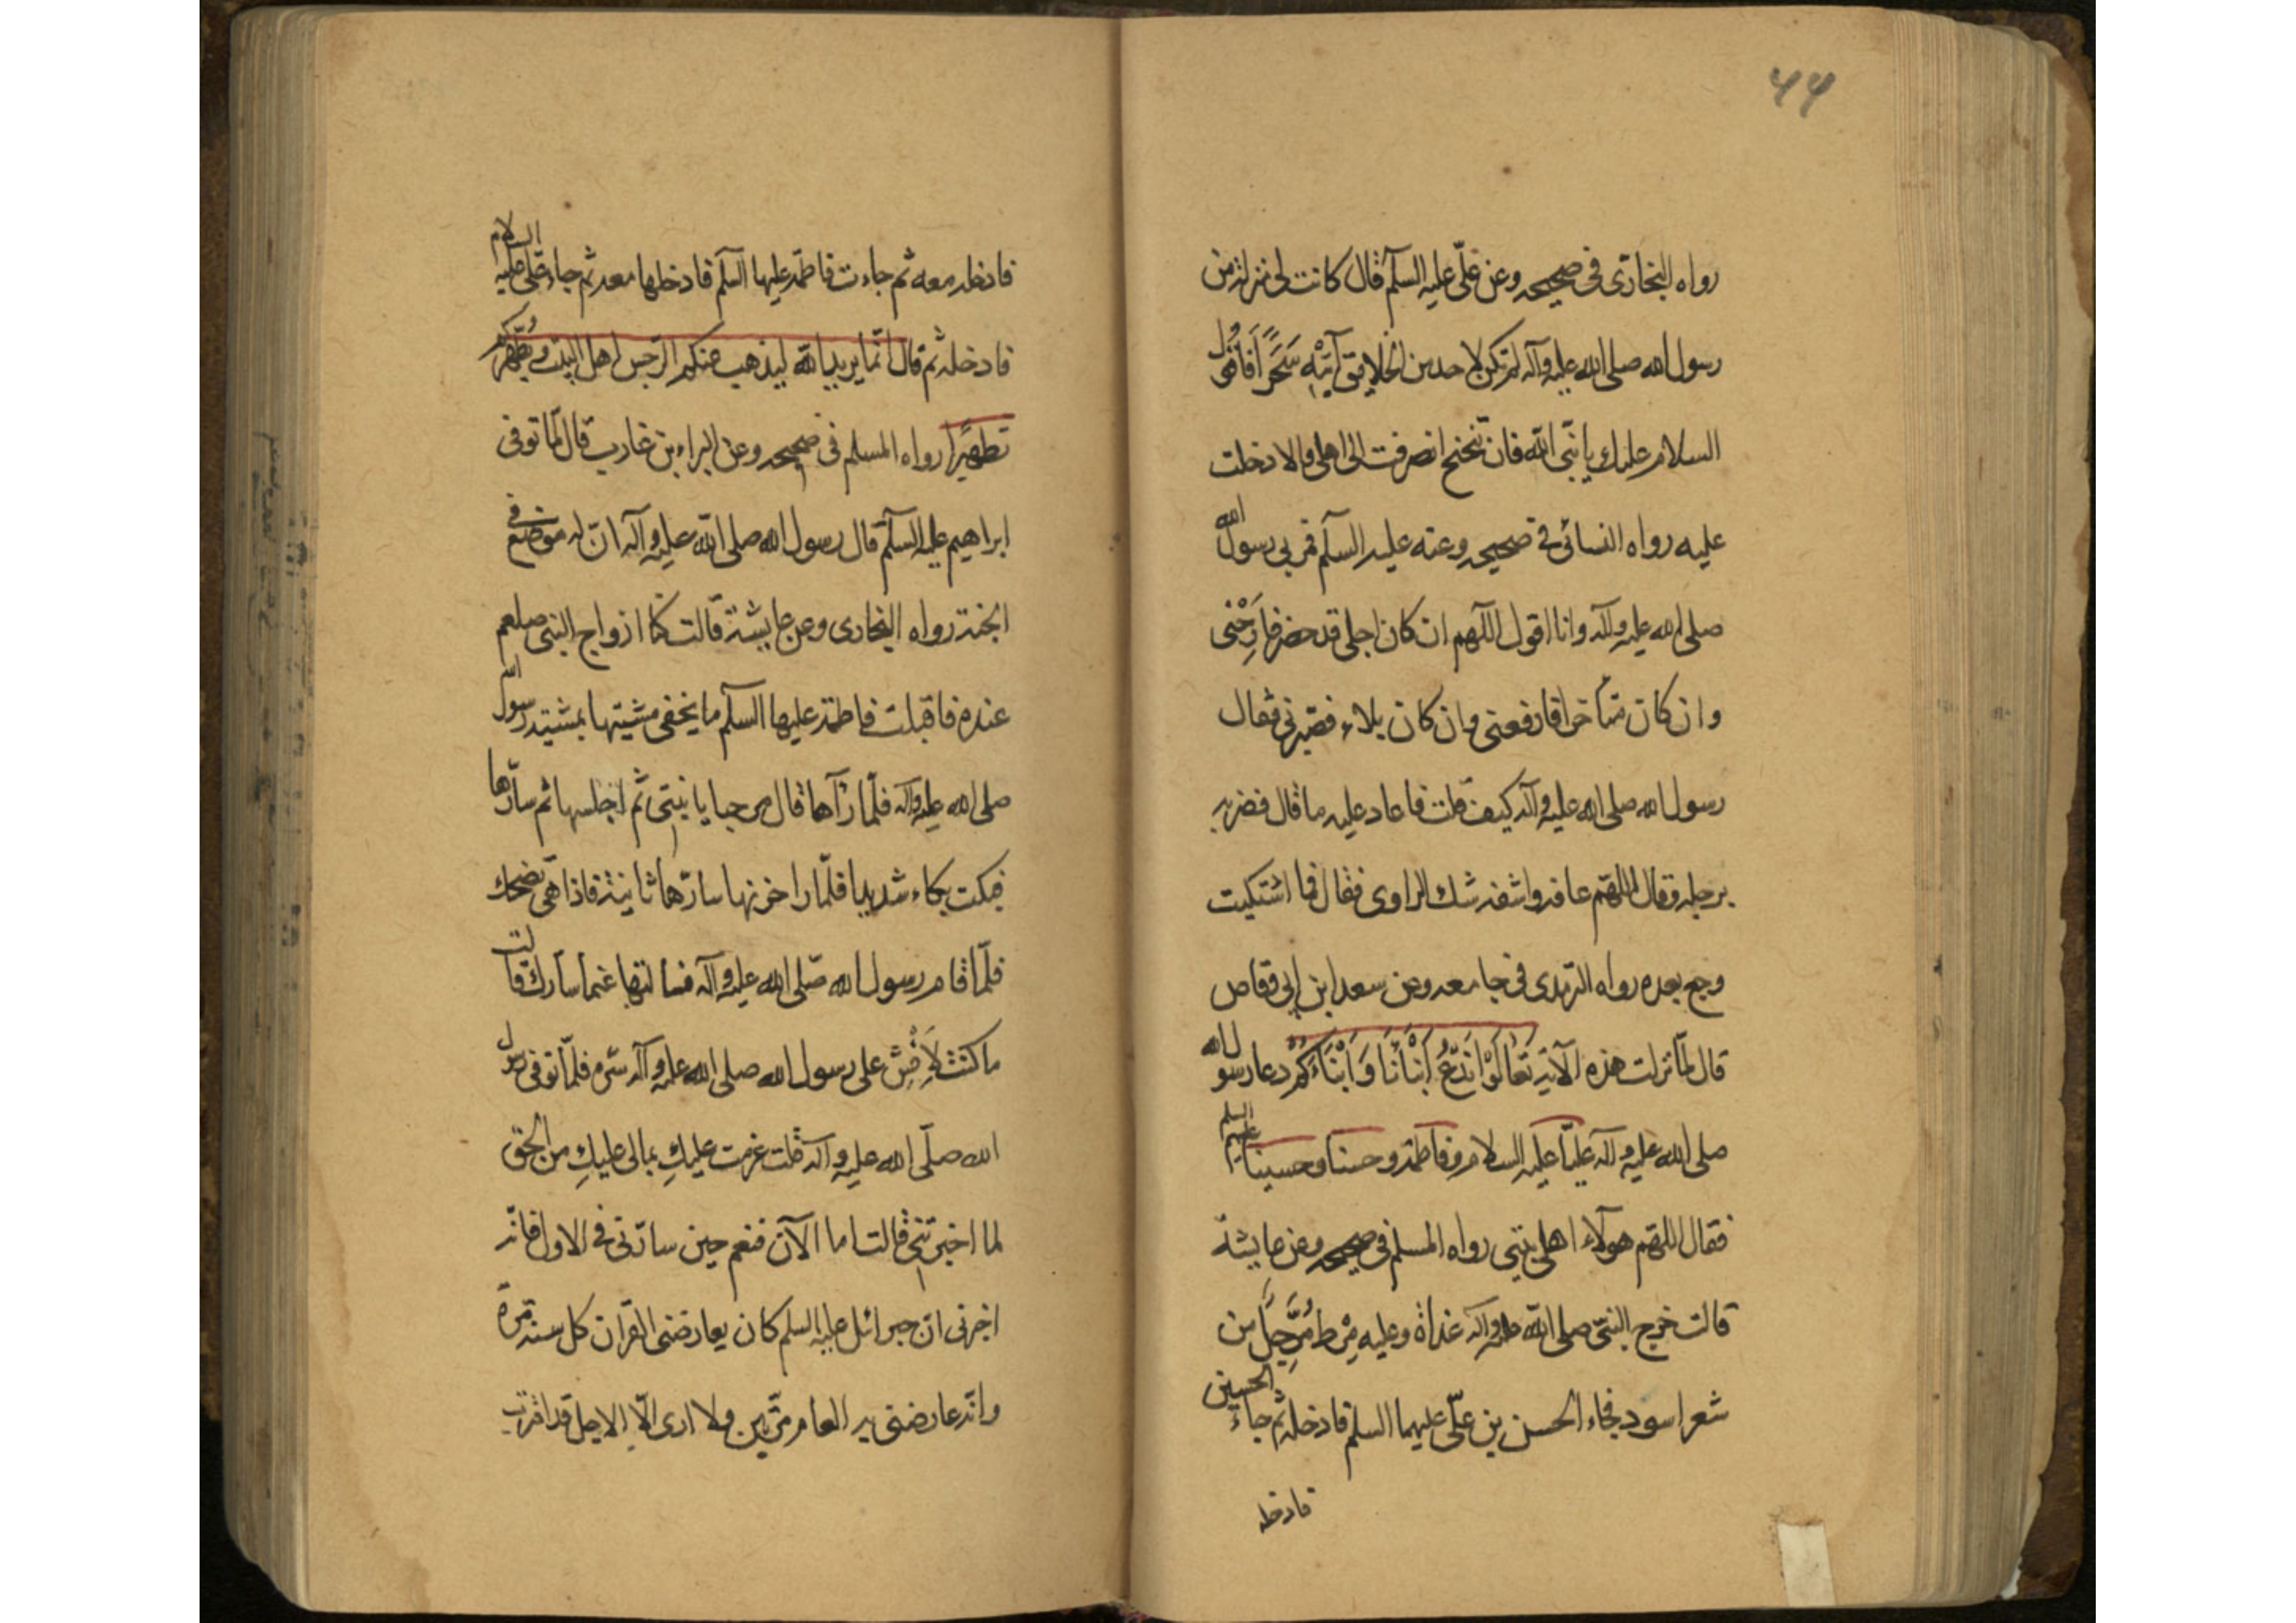 ۴۴
رواه البخاری فی صحیحه وعن علیّ علیه السلم قال کانت لی منزلة من
رسول الله صلی الله علیه وآله لم تکن لاحد من الخلایق آتیْه سَحَرًا فاقول
السلام علیك یا نبیّ الله فان تنحنح انصرفت الی اهلی والا دخلت
علیه رواه النسائی فی صحیحه وعنه علیه السلم قمر بی رسول الله
صلی الله علیه وآله وانا اقول اللهم ان کان اجلی قد حضر فارِحْنی
وان کان متأخرا فارفعنی وان کان بلاء فصبّرنی فقال
رسول الله صلی الله علیه وآله کیف قلت فاعاد علیه ما قال فضربه
برجله وقال اللهّم عافه واشفه شك الراوی فقال فما اشتکیت
وجع بعده رواه الترمذی فی جامعه وعن سعد ابن ابی وقاص
قال لمّا نزلت هذه الآیة تَعَالَوْا نَدْعُ اَبْنَائَنَا وَاَبْنَاءَكُمْ دعا رسول الله
صلی الله علیه وآله علیّا علیه السلام وفاطمة وحسنا وحسینا علیهم السلم
فقال اللهّم هولآء اهل بیتی رواه المسلم فی صحیحه وعن عایشة
قالت خرج النبیّ صلی الله علیه وآله غداة وعلیه مِرْط مُرَحَّلً من
شعر اسود فجاء الحسن بن علیّ علیهما السلم فادخله ثم جاء الحسین
فادخله
فادخله معه ثم جاءت فاطمة علیها السلم فادخلها معه ثم جاء علی علیه السلام
فادخله ثم قال انّما یرید الله لیذهب عنکم الرّجس اهل البیت ویُطَهِّرکم
تطهیرًا رواه المسلم فی صحیحه وعن البراء بن عازب قال لمّا توفی
ابراهیم علیه السلم قال رسول الله صلی الله علیه وآله انّ له مرضع فی
الجنة رواه البخاری وعن عایشة قالت کنّا ازواج النبی صلعم
عنده فاقبلت فاطمة علیها السلم ما یخفی مشیتها بمشیة رسول الله
صلی الله علیه وآله فلمّا رآها قال مرحبا یا بنتی ثم اجلسها ثم سارّها
فبکت بکاء شدیدا فلمّا را حزنها سارّها ثانیة فاذا هی تضحك
فلمّا قام رسول الله صلّی الله علیه وآله فسألتها عمّا سارك قالت
ما کنت لِاُفْشِ علی رسول الله صلی الله علیه وآله سرّه فلمّا توفی رسول
الله صلّی الله علیه وآله قلت عزمت علیكِ بمالی علیكِ من الحق
لما اخبرتنی قالت اما الآن فنعم حین سارّنی فی الاول فانّه
اخبرنی انّ جبرائل علیه السلم کان یعارضنی القرآن کل سنة مرة
وانّه عارضنی به العام مرّتین ولا اری الّا الاجل قد اقترب